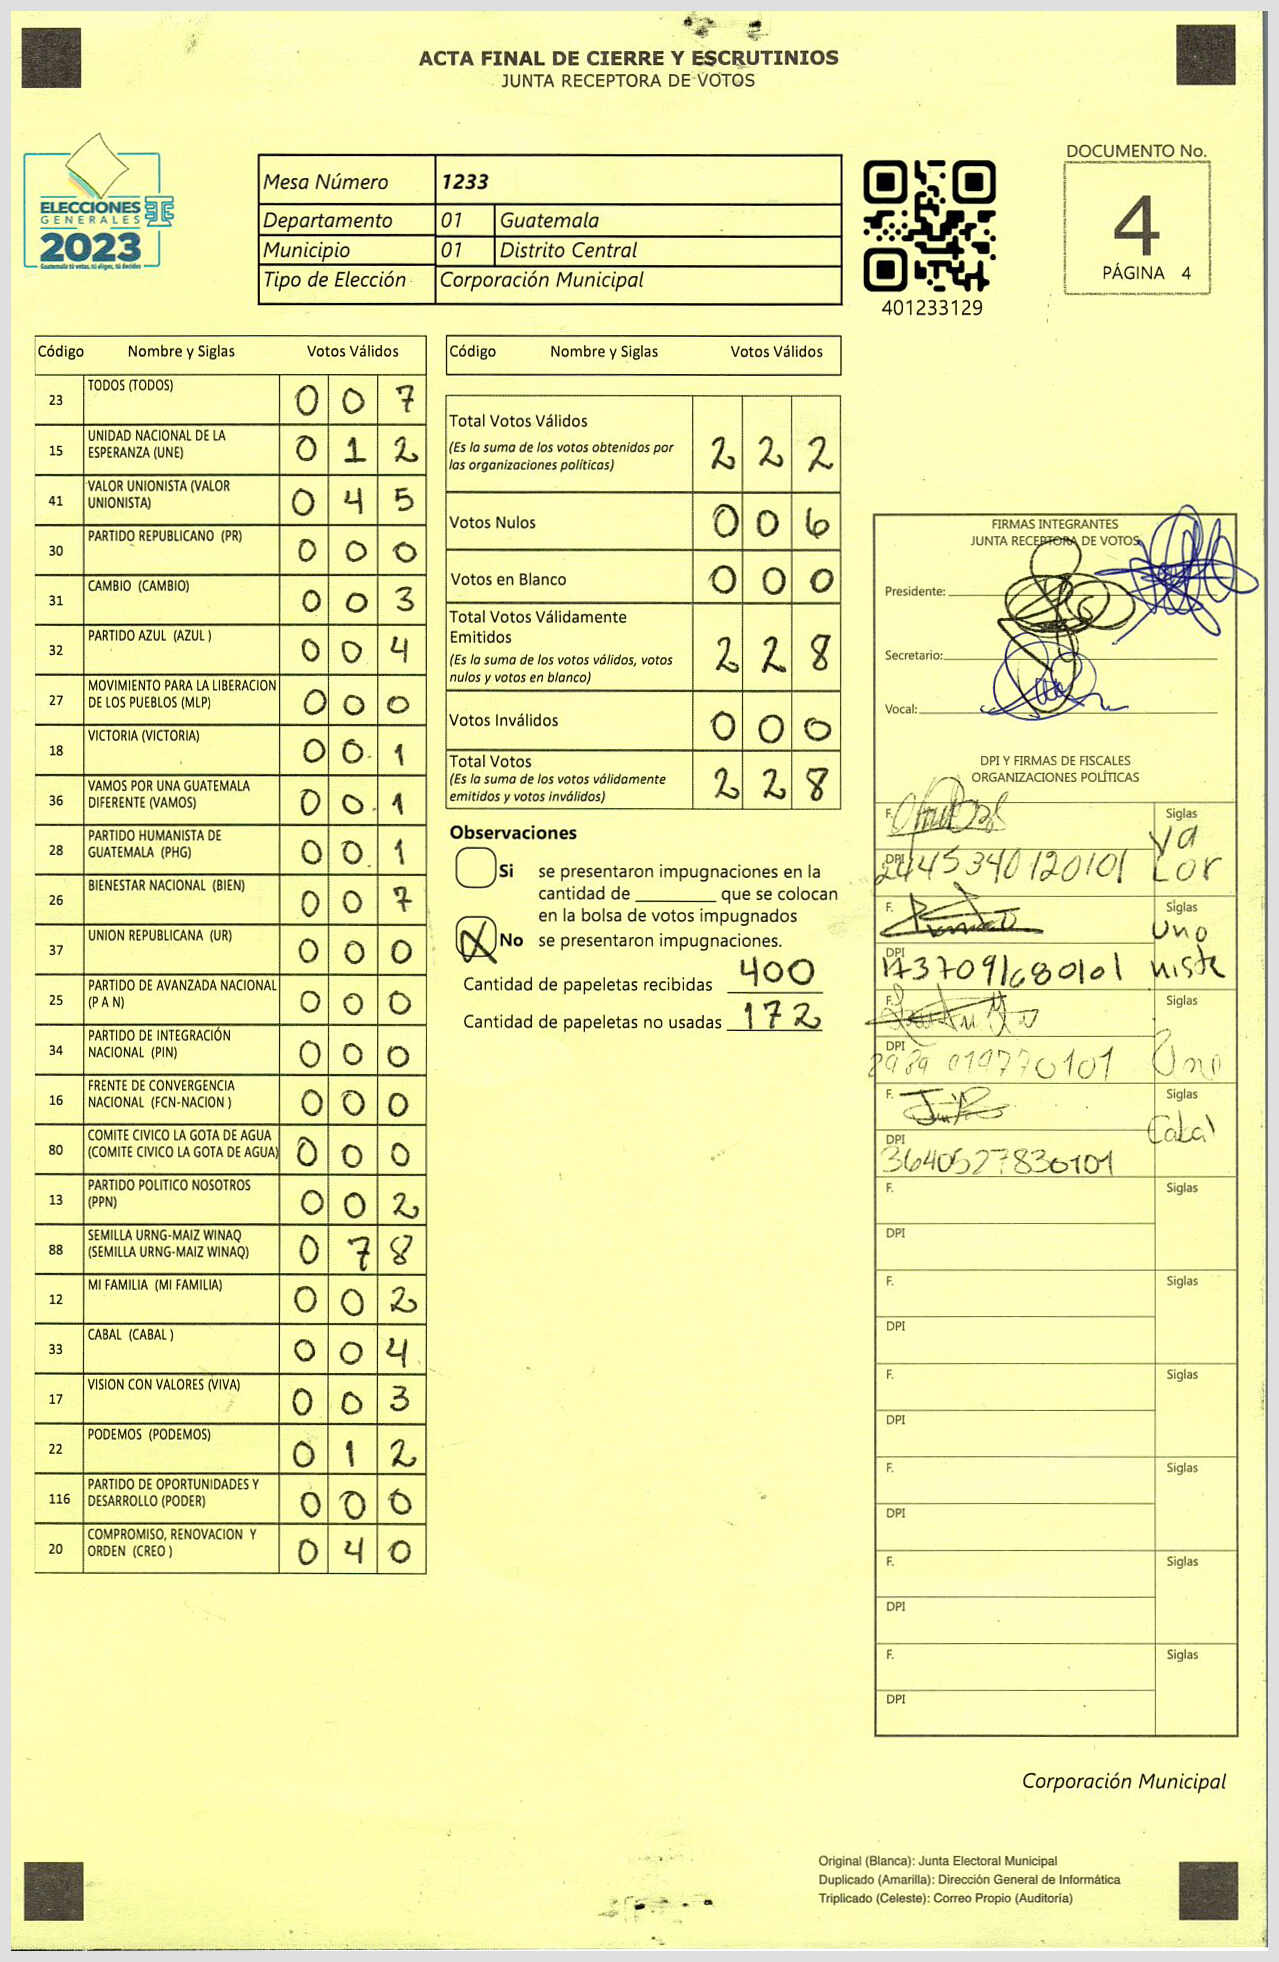 ACTA FINAL DE CIERRE Y ESCRUTINIOS
JUNTA RECEPTORA DE VOTOS
ELECCIONES
GENERALES
2023
Guatemala tú votas, tú eliges, tú decides
Mesa Número 1233
Departamento 01 Guatemala
Municipio 01 Distrito Central
Tipo de Elección Corporación Municipal
401233129
DOCUMENTO No.
4
PÁGINA 4
Código Nombre y Siglas Votos Válidos
23 TODOS (TODOS) 0 0 7
15 UNIDAD NACIONAL DE LA
ESPERANZA (UNE) 0 1 2
41 VALOR UNIONISTA (VALOR
UNIONISTA) 0 4 5
30 PARTIDO REPUBLICANO (PR) 0 0 0
31 CAMBIO (CAMBIO) 0 0 3
32 PARTIDO AZUL (AZUL ) 0 0 4
27 MOVIMIENTO PARA LA LIBERACION
DE LOS PUEBLOS (MLP) 0 0 0
18 VICTORIA (VICTORIA) 0 0 1
36 VAMOS POR UNA GUATEMALA
DIFERENTE (VAMOS) 0 0 1
28 PARTIDO HUMANISTA DE
GUATEMALA (PHG) 0 0 1
26 BIENESTAR NACIONAL (BIEN) 0 0 7
37 UNION REPUBLICANA (UR) 0 0 0
25 PARTIDO DE AVANZADA NACIONAL
(P A N) 0 0 0
34 PARTIDO DE INTEGRACIÓN
NACIONAL (PIN) 0 0 0
16 FRENTE DE CONVERGENCIA
NACIONAL (FCN-NACION ) 0 0 0
80 COMITE CIVICO LA GOTA DE AGUA
(COMITE CIVICO LA GOTA DE AGUA) 0 0 0
13 PARTIDO POLITICO NOSOTROS
(PPN) 0 0 2
88 SEMILLA URNG-MAIZ WINAQ
(SEMILLA URNG-MAIZ WINAQ) 0 7 8
12 MI FAMILIA (MI FAMILIA) 0 0 2
33 CABAL (CABAL ) 0 0 4
17 VISION CON VALORES (VIVA) 0 0 3
22 PODEMOS (PODEMOS) 0 1 2
116 PARTIDO DE OPORTUNIDADES Y
DESARROLLO (PODER) 0 0 0
20 COMPROMISO, RENOVACION Y
ORDEN (CREO ) 0 4 0
Código Nombre y Siglas Votos Válidos
Total Votos Válidos
(Es la suma de los votos obtenidos por
las organizaciones políticas) 2 2 2
Votos Nulos 0 0 6
Votos en Blanco 0 0 0
Total Votos Válidamente
Emitidos
(Es la suma de los votos válidos, votos
nulos y votos en blanco) 2 2 8
Votos Inválidos 0 0 0
Total Votos
(Es la suma de los votos válidamente
emitidos y votos inválidos) 2 2 8
Observaciones
Si se presentaron impugnaciones en la
cantidad de ________ que se colocan
en la bolsa de votos impugnados
X No se presentaron impugnaciones.
Cantidad de papeletas recibidas 400
Cantidad de papeletas no usadas 172
FIRMAS INTEGRANTES
JUNTA RECEPTORA DE VOTOS
Presidente:
Secretario:
Vocal:
DPI Y FIRMAS DE FISCALES
ORGANIZACIONES POLÍTICAS
F. Siglas
Va
DPI 2445340120101 Lor
F. Siglas
Uno
DPI 1737091680101 niste
F. Siglas
DPI 2989 019770101 Une
F. Siglas
Cabal
DPI
3640527830101
F. Siglas
DPI
F. Siglas
DPI
F. Siglas
DPI
F. Siglas
DPI
F. Siglas
DPI
F. Siglas
DPI
Corporación Municipal
Original (Blanca): Junta Electoral Municipal
Duplicado (Amarilla): Dirección General de Informática
Triplicado (Celeste): Correo Propio (Auditoría)